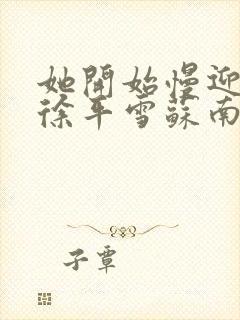 她開始慢迎
徐平雪蘇南
子蕈